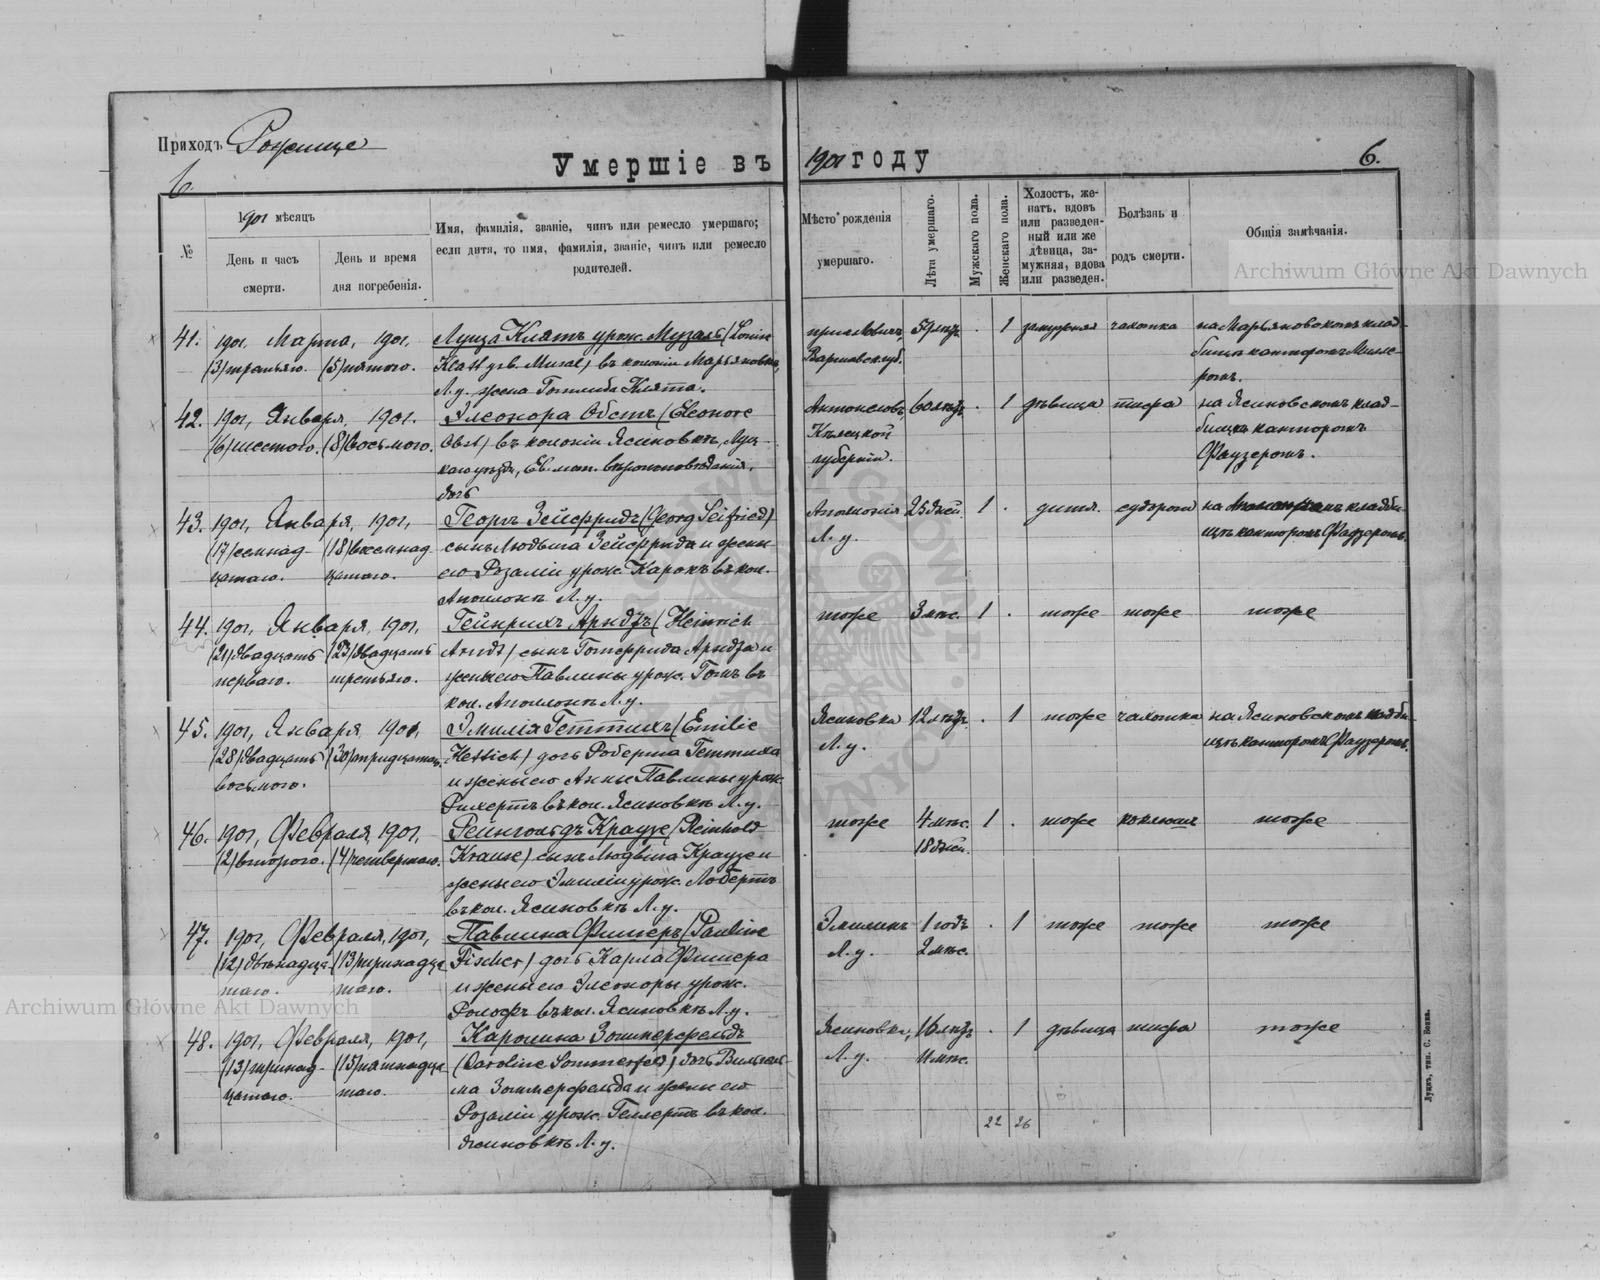 Приходъ Рожище
Умершіе въ 1901 году
6.
6.
№
1901 мѣсяцъ
День и часъ смерти.
День и время дня погребенія.
Имя, фамилія, званіе, чинъ или ремесло умершаго;
если дитя, то имя, фамилія, званіе, чинъ или ремесло
родителей.
Мѣсто рожденія
умершаго.
Лѣта умершаго.
Мужскаго пола.
Женскаго пола.
Холостъ, же-
натъ, вдовъ
или разведен-
ный или же
дѣвица, за-
мужняя, вдова
или разведен.
Болѣзнь и
родъ смерти.
Общія замѣчанія.
Archiwum Główne Akt Dawnych
41. 1901, Марта, 1901, Луиза Клаттъ урож. Музаль (Louise 59 лѣтъ . 1 замужняя чахотка на Марьяновскомъ клад-
(3) третьяго. (5) пятого. Klatt geb. Musal) въ колоніи Марьяновка, Варшавск. губ. бищѣ канторомъ
Л. у. жена Готлиба Клятта.
42. 1901, Января, 1901. Элеонора Обстъ (Eleonore 60 лѣтъ . 1 дѣвица тифъ на Ясиновскомъ клад-
(6) шестого. (8) восьмого. Obst) въ колоніи Ясиновкѣ, Луц- Кѣлецкой бищѣ канторомъ
каго уѣзда, Ев. лют. вѣроисповѣданія, губерніи. Фаузеромъ.
43. 1901, Января, 1901, Георгъ Зейффридъ (Georg Seifried) Аполлонія 25 дней 1 . дитя. судороги на кладби-
(17) семнад- (18) восемнад- сынъ Людвига Зейффрида и жены Л. у. щѣ канторомъ Фаузеромъ.
цатаго. цатаго. его Розаліи урож. въ кол.
Л. у.
44. 1901, Января, 1901, Гейнрихъ Арндтъ (Heinrich тоже 3 мѣс. 1 . тоже тоже тоже
(21) двадцать (23) двадцать Arndt) сынъ Готфрида Арндта и
перваго. третьяго. жены его Павлины урож. въ
кол. Л. у.
45. 1901, Января, 1901, Эмилія Геттихъ (Emilie Ясиновка 12 лѣтъ . 1 тоже чахотка на Ясиновскомъ кладби-
(28) двадцать (30) тридцатаго. Hettich) дочь Роберта Геттиха Л. у. щѣ канторомъ Фаузеромъ.
восьмого. и жены его Анны Павлины урож.
въ кол. Ясиновкѣ Л. у.
46. 1901, Февраля, 1901, Рейнгольдъ Краузе (Reinhold тоже 4 мѣс. 1 . тоже коклюшъ тоже
(2) второго. (4) четвертаго. Krause) сынъ Людвига Краузе и 18 дней.
жены его Эмиліи урож.
въ кол. Ясиновкѣ Л. у.
47. 1901, Февраля, 1901, Павлина Фишеръ (Pauline Эмилинъ 1 годъ . 1 тоже тоже тоже
(12) двѣнадца- (13) тринадца- Fischer) дочь Карла Фишера Л. у. 2 мѣс.
таго. таго. и жены его Элеоноры урож.
въ кол. Ясиновкѣ Л. у.
48. 1901, Февраля, 1901, Каролина Зоммерфельдъ Ясиновка, 16 лѣтъ . 1 дѣвица тифъ тоже
(13) тринад- (15) пятнадца- (Caroline Sommerfeld) дочь Вильгель- Л. у. 11 мѣс.
цатаго. таго. ма Зоммерфельда и жены его
Розаліи урож. Геллертъ въ кол.
Ясиновкѣ Л. у.
22 26
Archiwum Główne Akt Dawnych